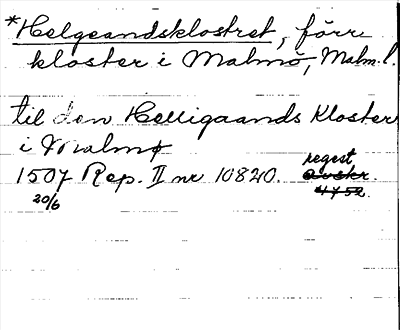 *Helgeandsklostret, förr
kloster i Malmö, Malm.l.
til den Helligaands Kloster
i Malmø
1507 Rep. II nr 10820. regest
20/6 avskr.
4752.